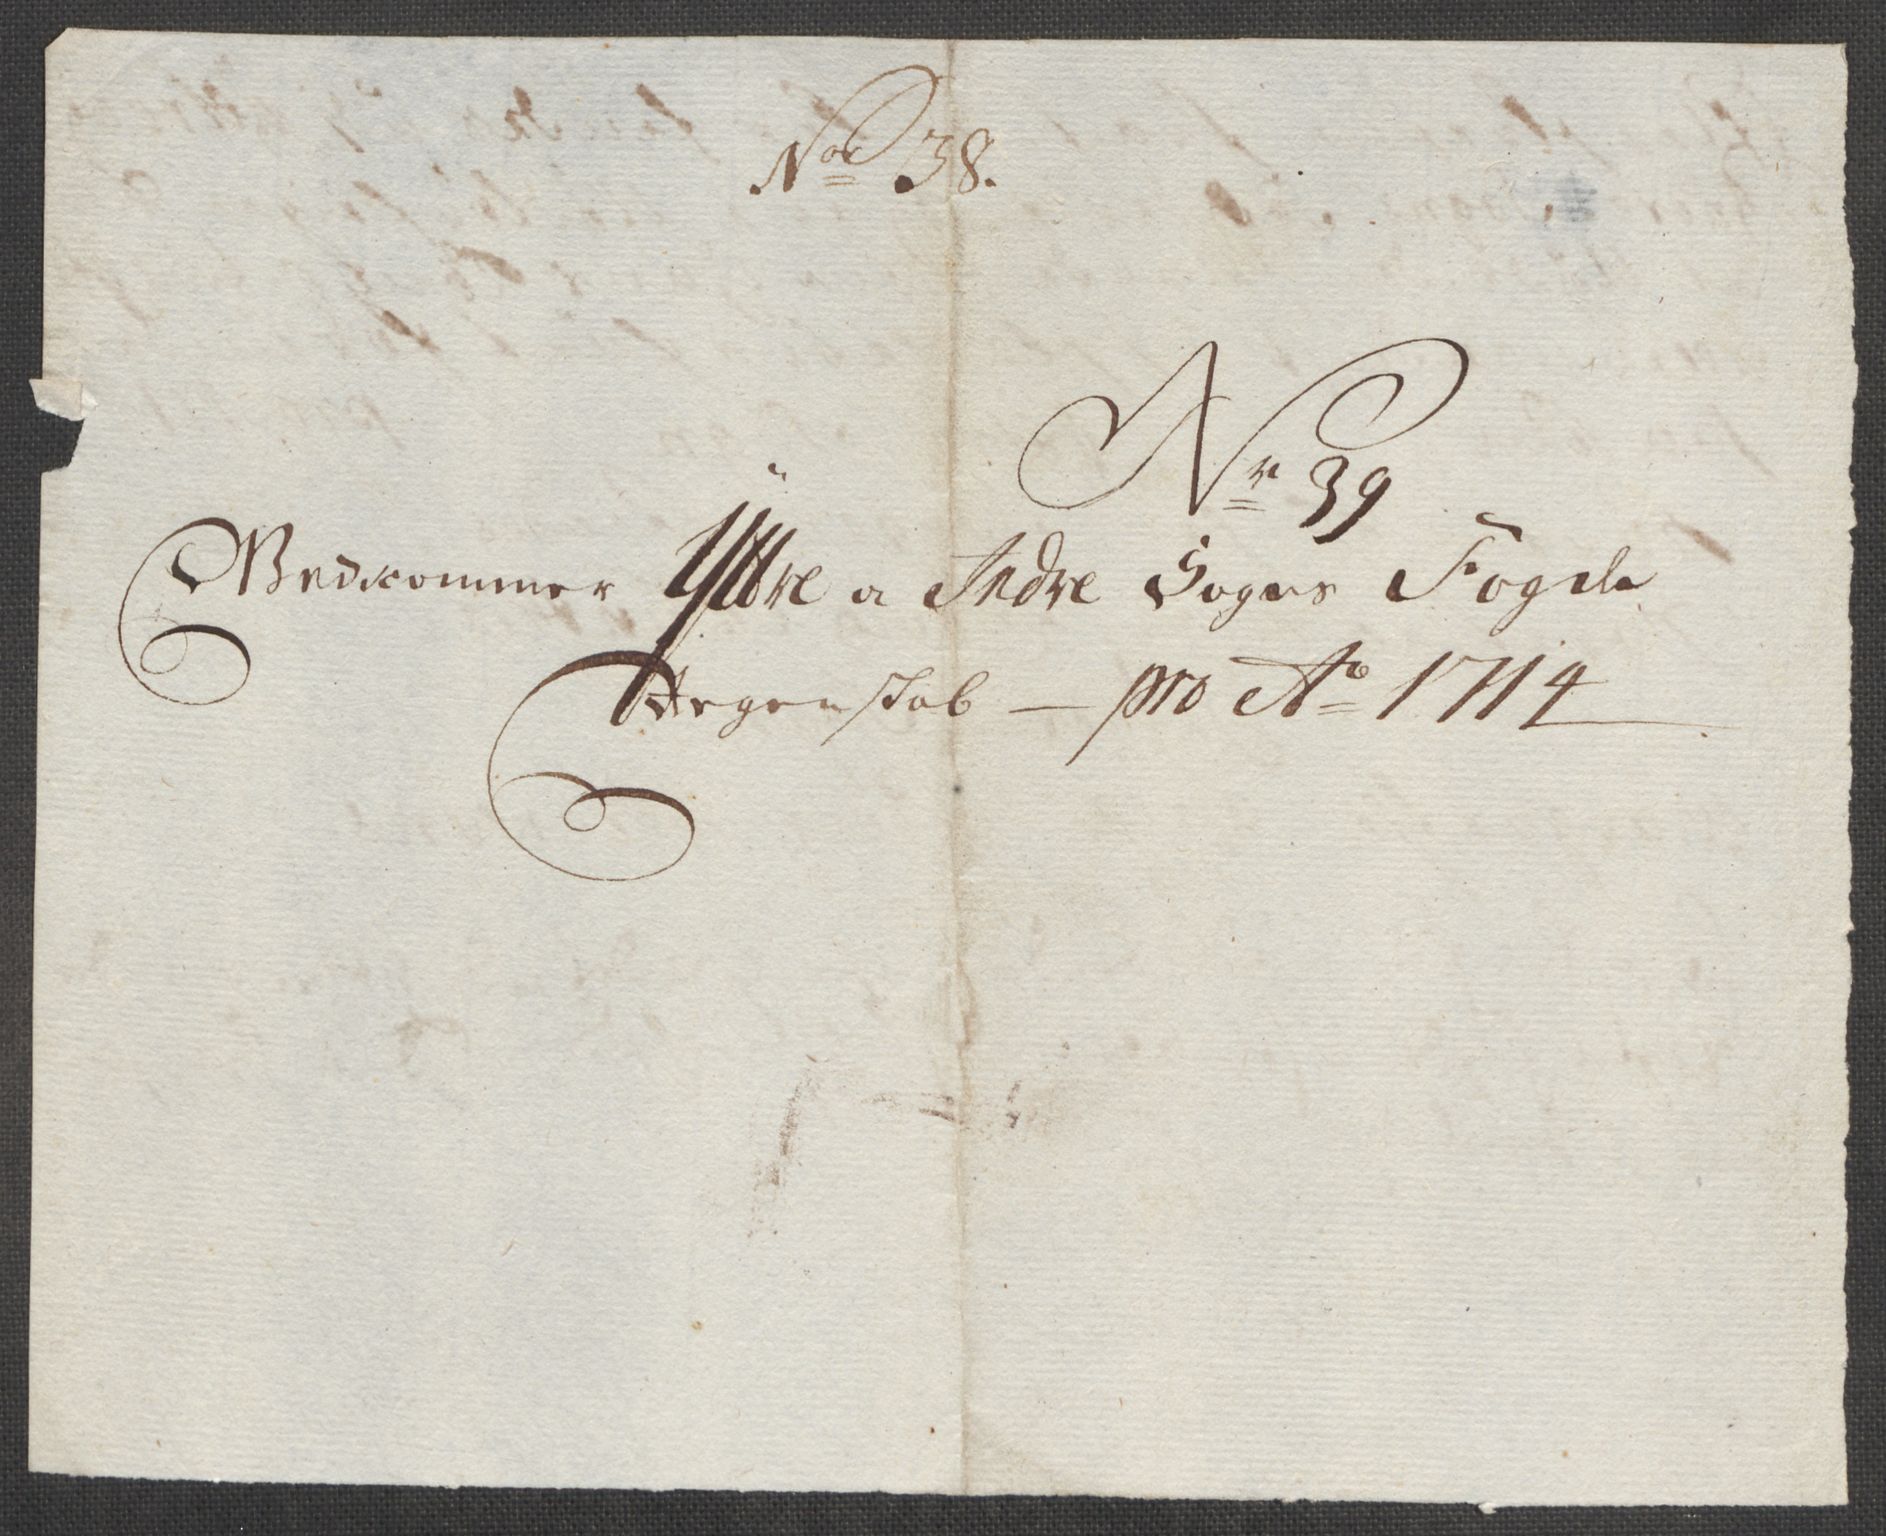 No 38.
Nr 39
Vedkommer Yttre a Indre Sogns Fogde
Regenskab — pro Ao 1714